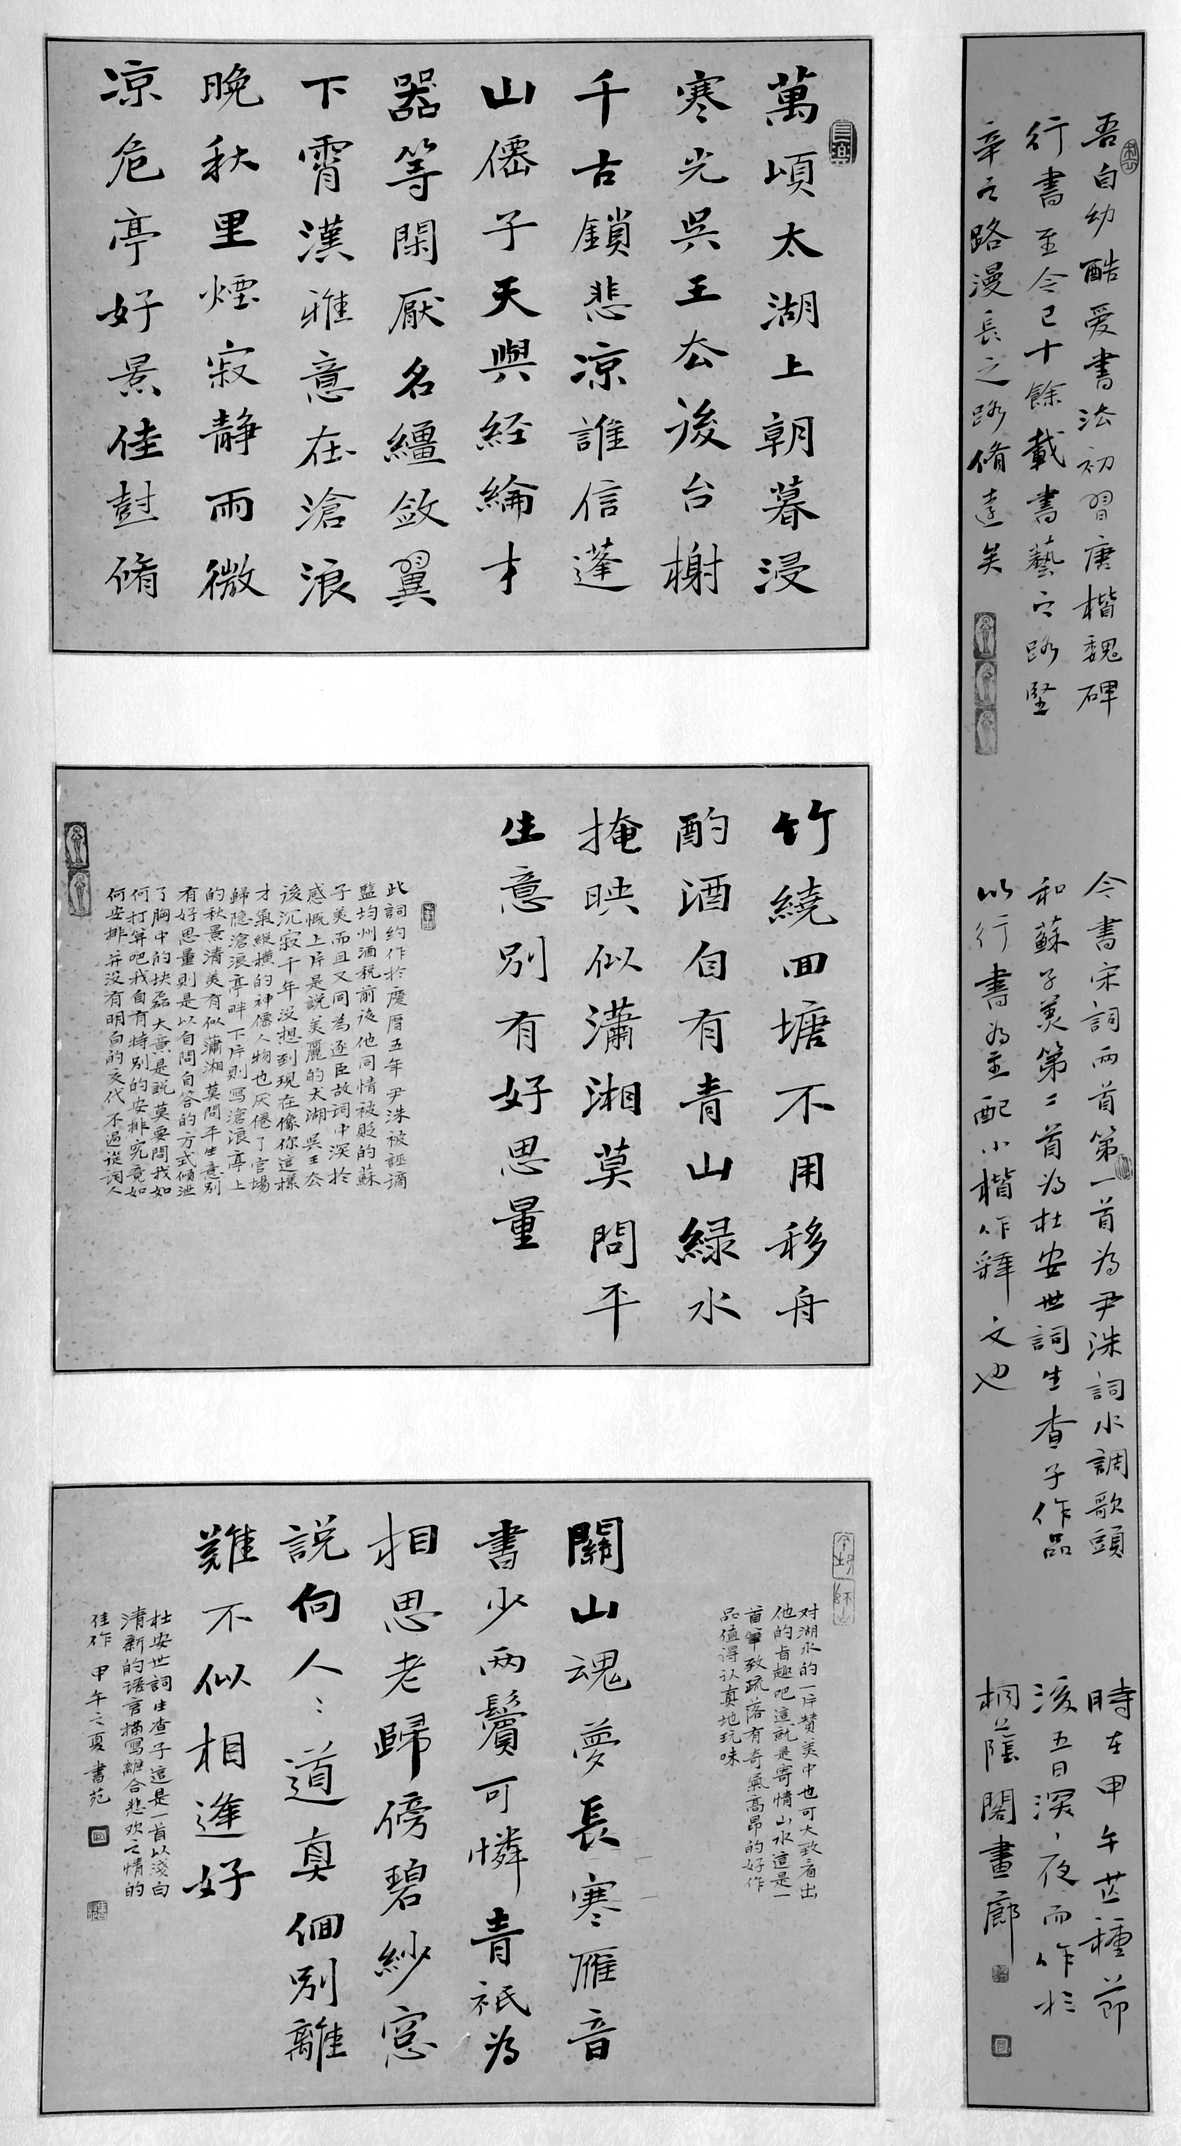 萬頃太湖上朝暮浸
寒光吳王去後台榭
千古鎖悲涼誰信蓬
山僊子天與経綸才
器等閑厭名繮斂翼
下霄漢雅意在滄浪
晚秋里煙寂静雨微
凉危亭好景佳尌脩
竹繞回塘不用移舟
酌酒自有青山緑水
掩映似瀟湘莫問平
生意別有好思量
此詞約作於慶曆五年尹洙被誣謫
監均州酒税前後他同情被貶的蘇
子美而且又同為逐臣故詞中深於
感慨上片是説美麗的太湖吳王去
後沉寂千年没想到現在像你這樣
才氣縱横的神僊人物也厌倦了官場
歸隐滄浪亭畔下片則寫滄浪亭上
的秋景清美有似瀟湘莫問平生意别
有好思量則是以自問自答的方式傾泄
了胸中的块磊大意是説莫要問我如
何打算吧我自有特别的安排究竟如
何安排并没有明白的交代不過從詞人
对湖水的一片赞美中也可大致看出
他的旨趣吧這就是寄情山水這是一
首筆致疏落有奇氣高昂的好作
品值得认真地玩味
關山魂夢長寒雁音
書少兩鬢可憐青祇為
相思老歸傍碧紗窓
説向人:道真個别離
難不似相逢好
杜安世詞生查子這是一首以淺白
清新的语言描寫離合悲欢之情的
佳作 甲午之夏書苑
吾自幼酷爱書法初習唐楷魏碑
行書至今已十餘載書藝之路堅
辛之路漫長之路脩遠矣
今書宋詞兩首第一首為尹洙詞水調歌頭
和蘇子美第二首為杜安世詞生查子作品
以行書為主配小楷作釋文也
時在甲午芒種節
後五日深、夜而作於
桐蔭閣畫廊